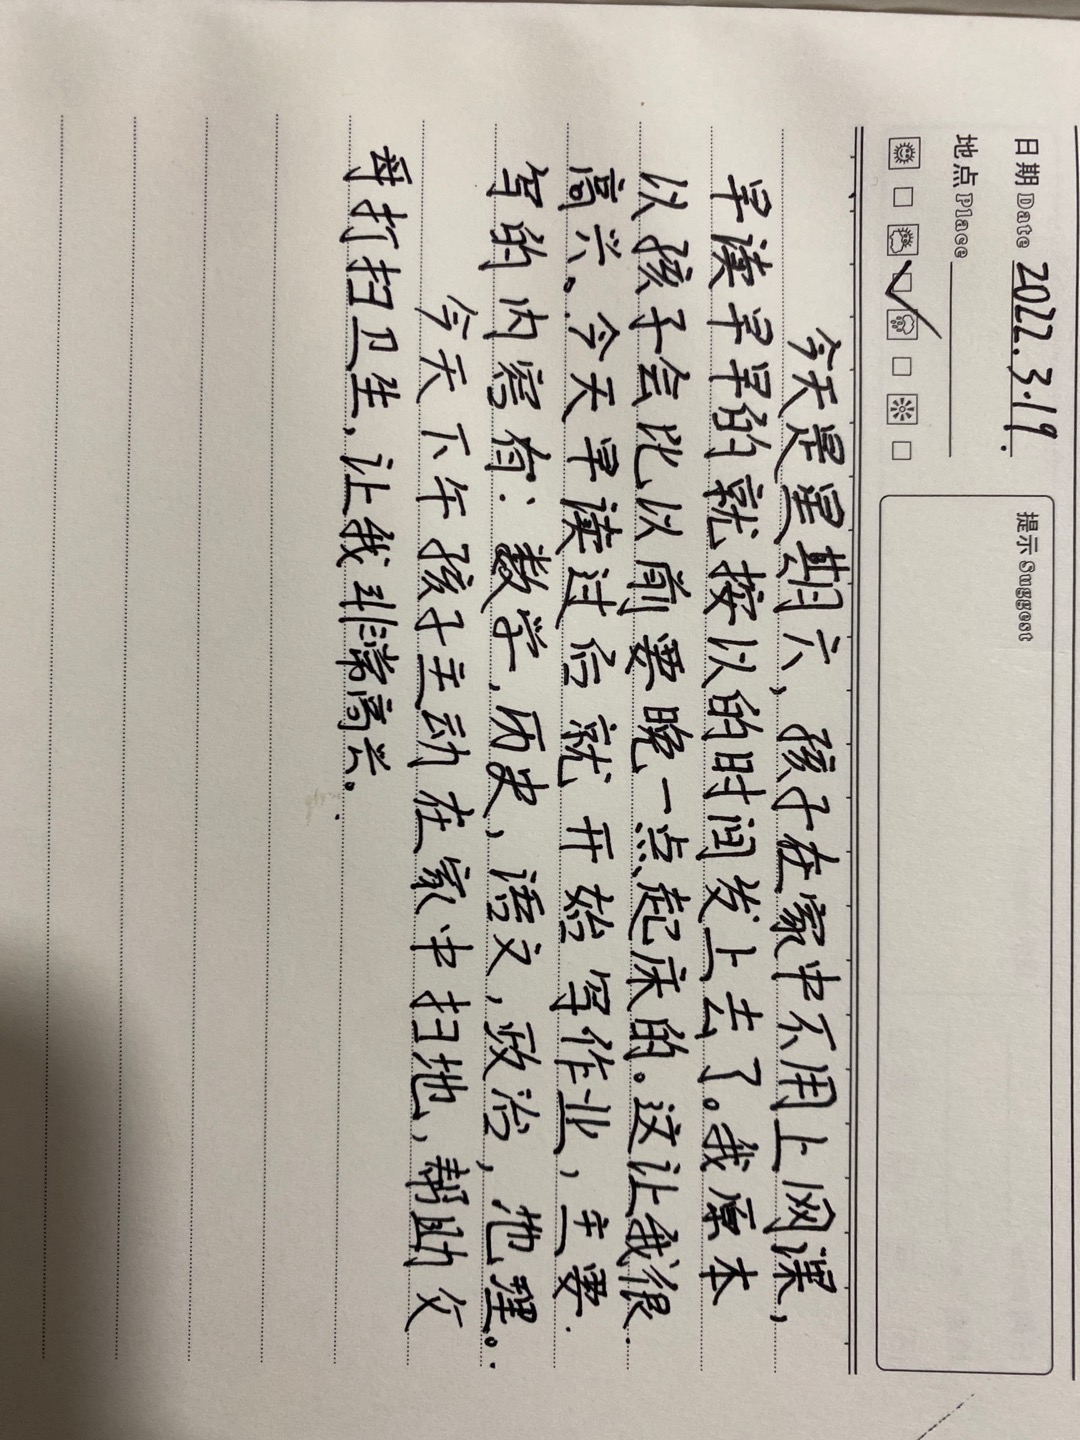 日期 Date 2022.3.19.
地点 Place
提示 Suggest
今天是星期六，孩子在家中不用上网课，
早读早早的就按以的时间发上去了。我原本
以孩子会比以前要晚一点起床的。这让我很
高兴。今天早读过后就开始写作业，主要
写的内容有：数学，历史，语文，政治，地理。
今天下午孩子主动在家中扫地，帮助父
母打扫卫生，让我非常高兴。